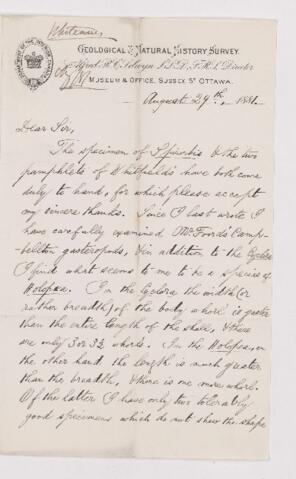 Whiteaves
GEOLOGICAL & NATURAL HISTORY SURVEY.
Alfred R. C. Selwyn, LL.D., F.R.S., Director
MUSEUM & OFFICE, SUSSEX ST OTTAWA.
August 29th, 1881.
Dear Sir,
The specimen of Spirorbis & the two
pamphlets of Whitfield's have both come
duly to hand, for which please accept
my sincere thanks. Since I last wrote I
have carefully examined Mr Foord's Camp-
bellton gasteropods, & in addition to the Cyclora
I find what seems to me to be a species of
Holopea. In the Cyclora the width (or
rather breadth) of the body whorl is greater
than the entire length of the shell, & there
are only 3 or 3½ whorls. In the Holopea, on
the other hand the length is much greater
than the breadth, & there is one more whorl.
Of the latter I have only two tolerably
good specimens which do not show the shape